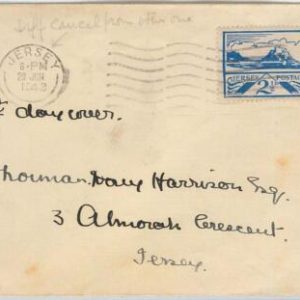 Diff cancel from other one
JERSEY
6-PM
29 JUN
1943
JERSEY POSTAGE
2½D
day cover.
Harrison Esq.
3 Almorah Crescent.
Jersey.